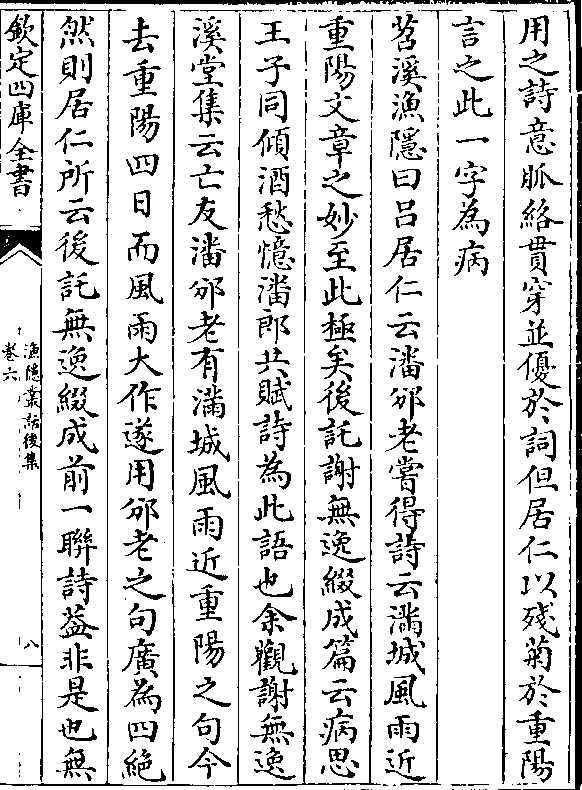 用之詩意脈絡貫穿並優於詞但居仁以殘菊於重陽
言之此一字為病
苕溪漁隱曰吕居仁云潘邠老嘗得詩云滿城風雨近
重陽文章之妙至此極矣後託謝無逸綴成篇云病思
王子同傾酒愁憶潘郎共賦詩為此語也余觀謝無逸
溪堂集云亡友潘邠老有滿城風雨近重陽之句今
去重陽四日而風雨大作遂用邠老之句廣為四絶
然則居仁所云後託無逸綴成前一聯詩葢非是也無
欽定四庫全書
漁隱叢話後集
卷六
八